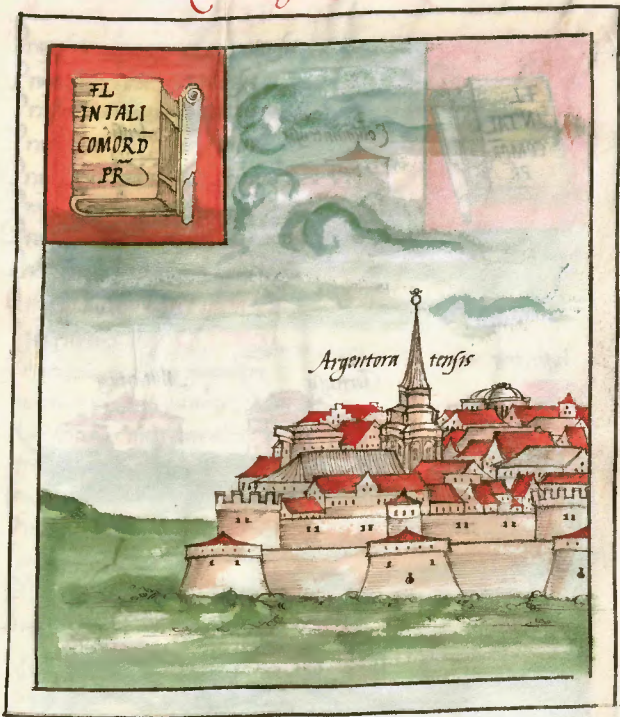 FL
INTALI
COMORD
PR
Argentora tensis